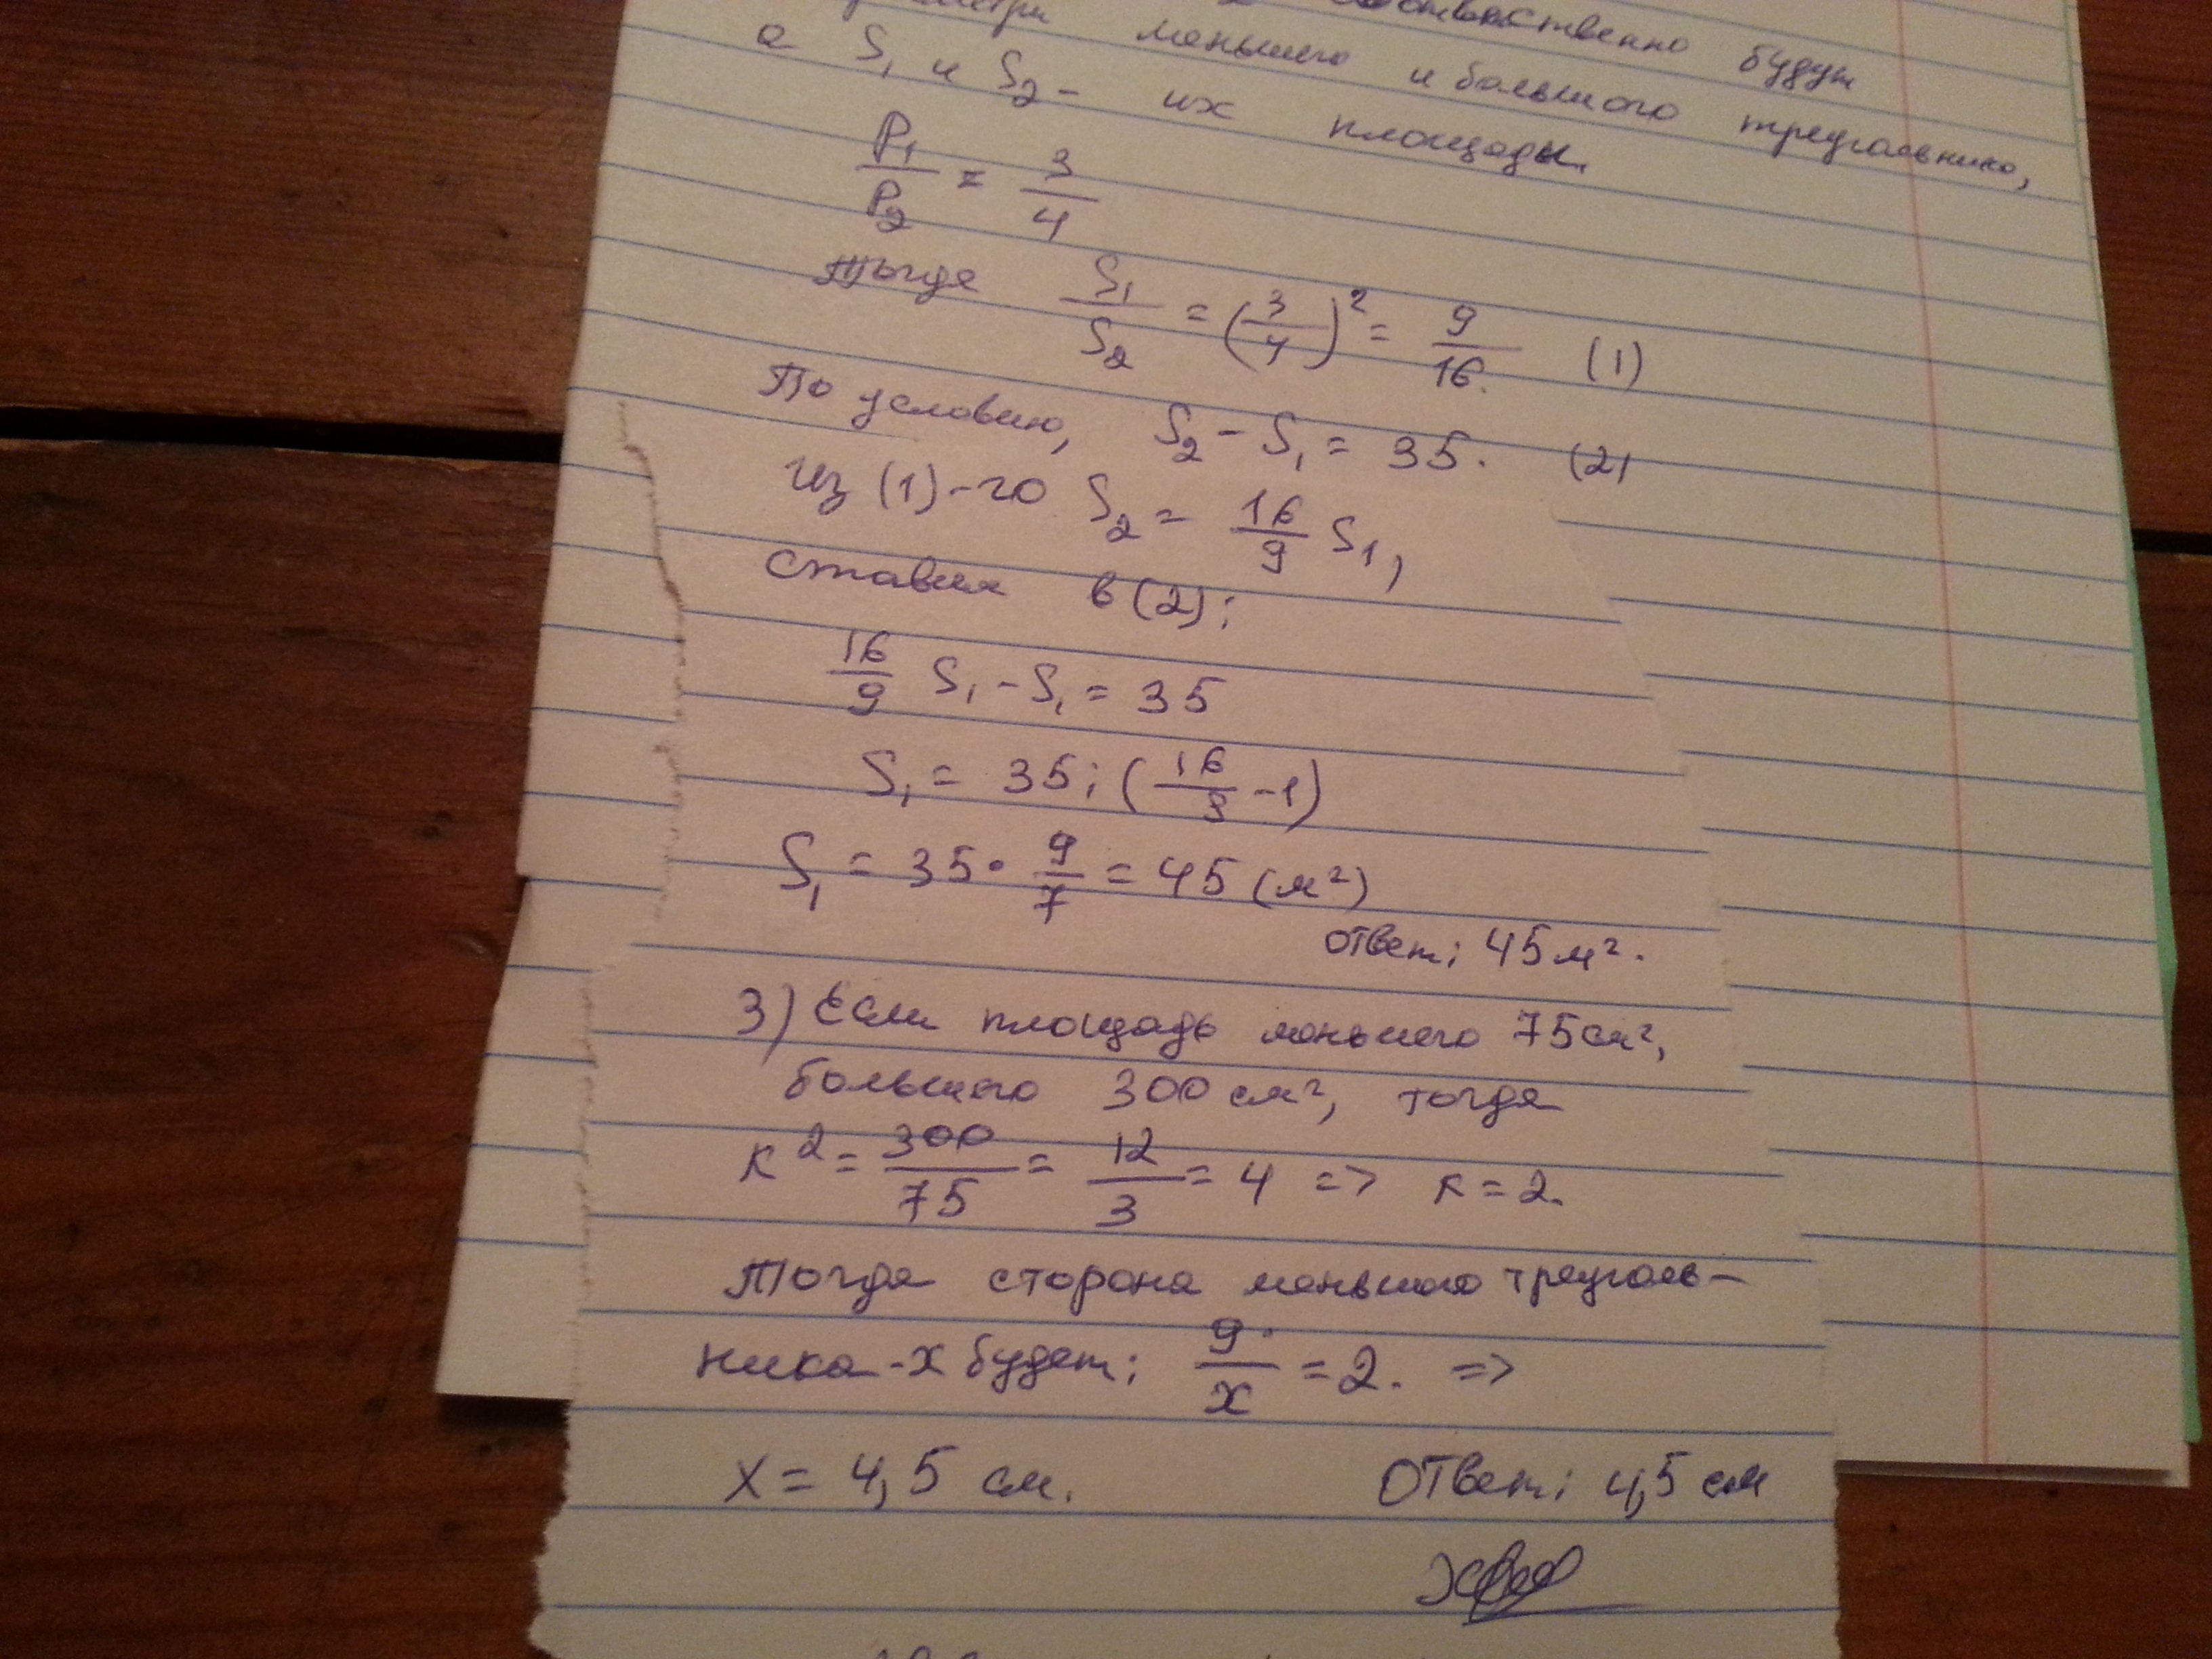 соответственно будут
меньшего и большого треугольника,
а S₁ и S₂ - их площади.
P₁/P₂ = 3/4
Тогда S₁/S₂ = (3/4)² = 9/16. (1)
По условию, S₂ - S₁ = 35. (2)
Из (1)-го S₂ = 16/9 S₁,
ставим в (2):
16/9 S₁ - S₁ = 35
S₁ = 35 : (16/9 - 1)
S₁ = 35 · 9/7 = 45 (м²)
Ответ: 45 м².
3) Если площадь меньшего 75 см²,
большого 300 см², тогда
к² = 300/75 = 12/3 = 4 => к = 2.
Тогда сторона меньшого треуголь-
ника - х будет: 9/х = 2. =>
х = 4,5 см. Ответ: 4,5 см